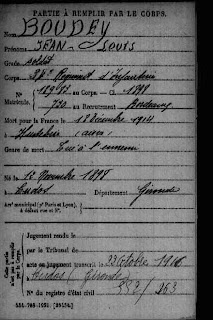 PARTIE À REMPLIR PAR LE CORPS.
Nom BOUDEY
Prénoms JEAN-Louis
Grade soldat
Corps Régiment d'Infanterie
N° au Corps. — Cl. 1898
Matricule. 730 au Recrutement Bordeaux
Mort pour la France le 18 Décembre 1914
à
Genre de mort Tué à l'ennemi
Né le 12 Novembre 1898
à Département Gironde
Arr' municipal (p' Paris et Lyon),
à défaut rue et N°.
Cette partie
n'est pas à remplir
par le Corps.
Jugement rendu le
par le Tribunal de
acte ou jugement transcrit le 23 Octobre 1916
à (Gironde)
N° du registre d'état civil 263